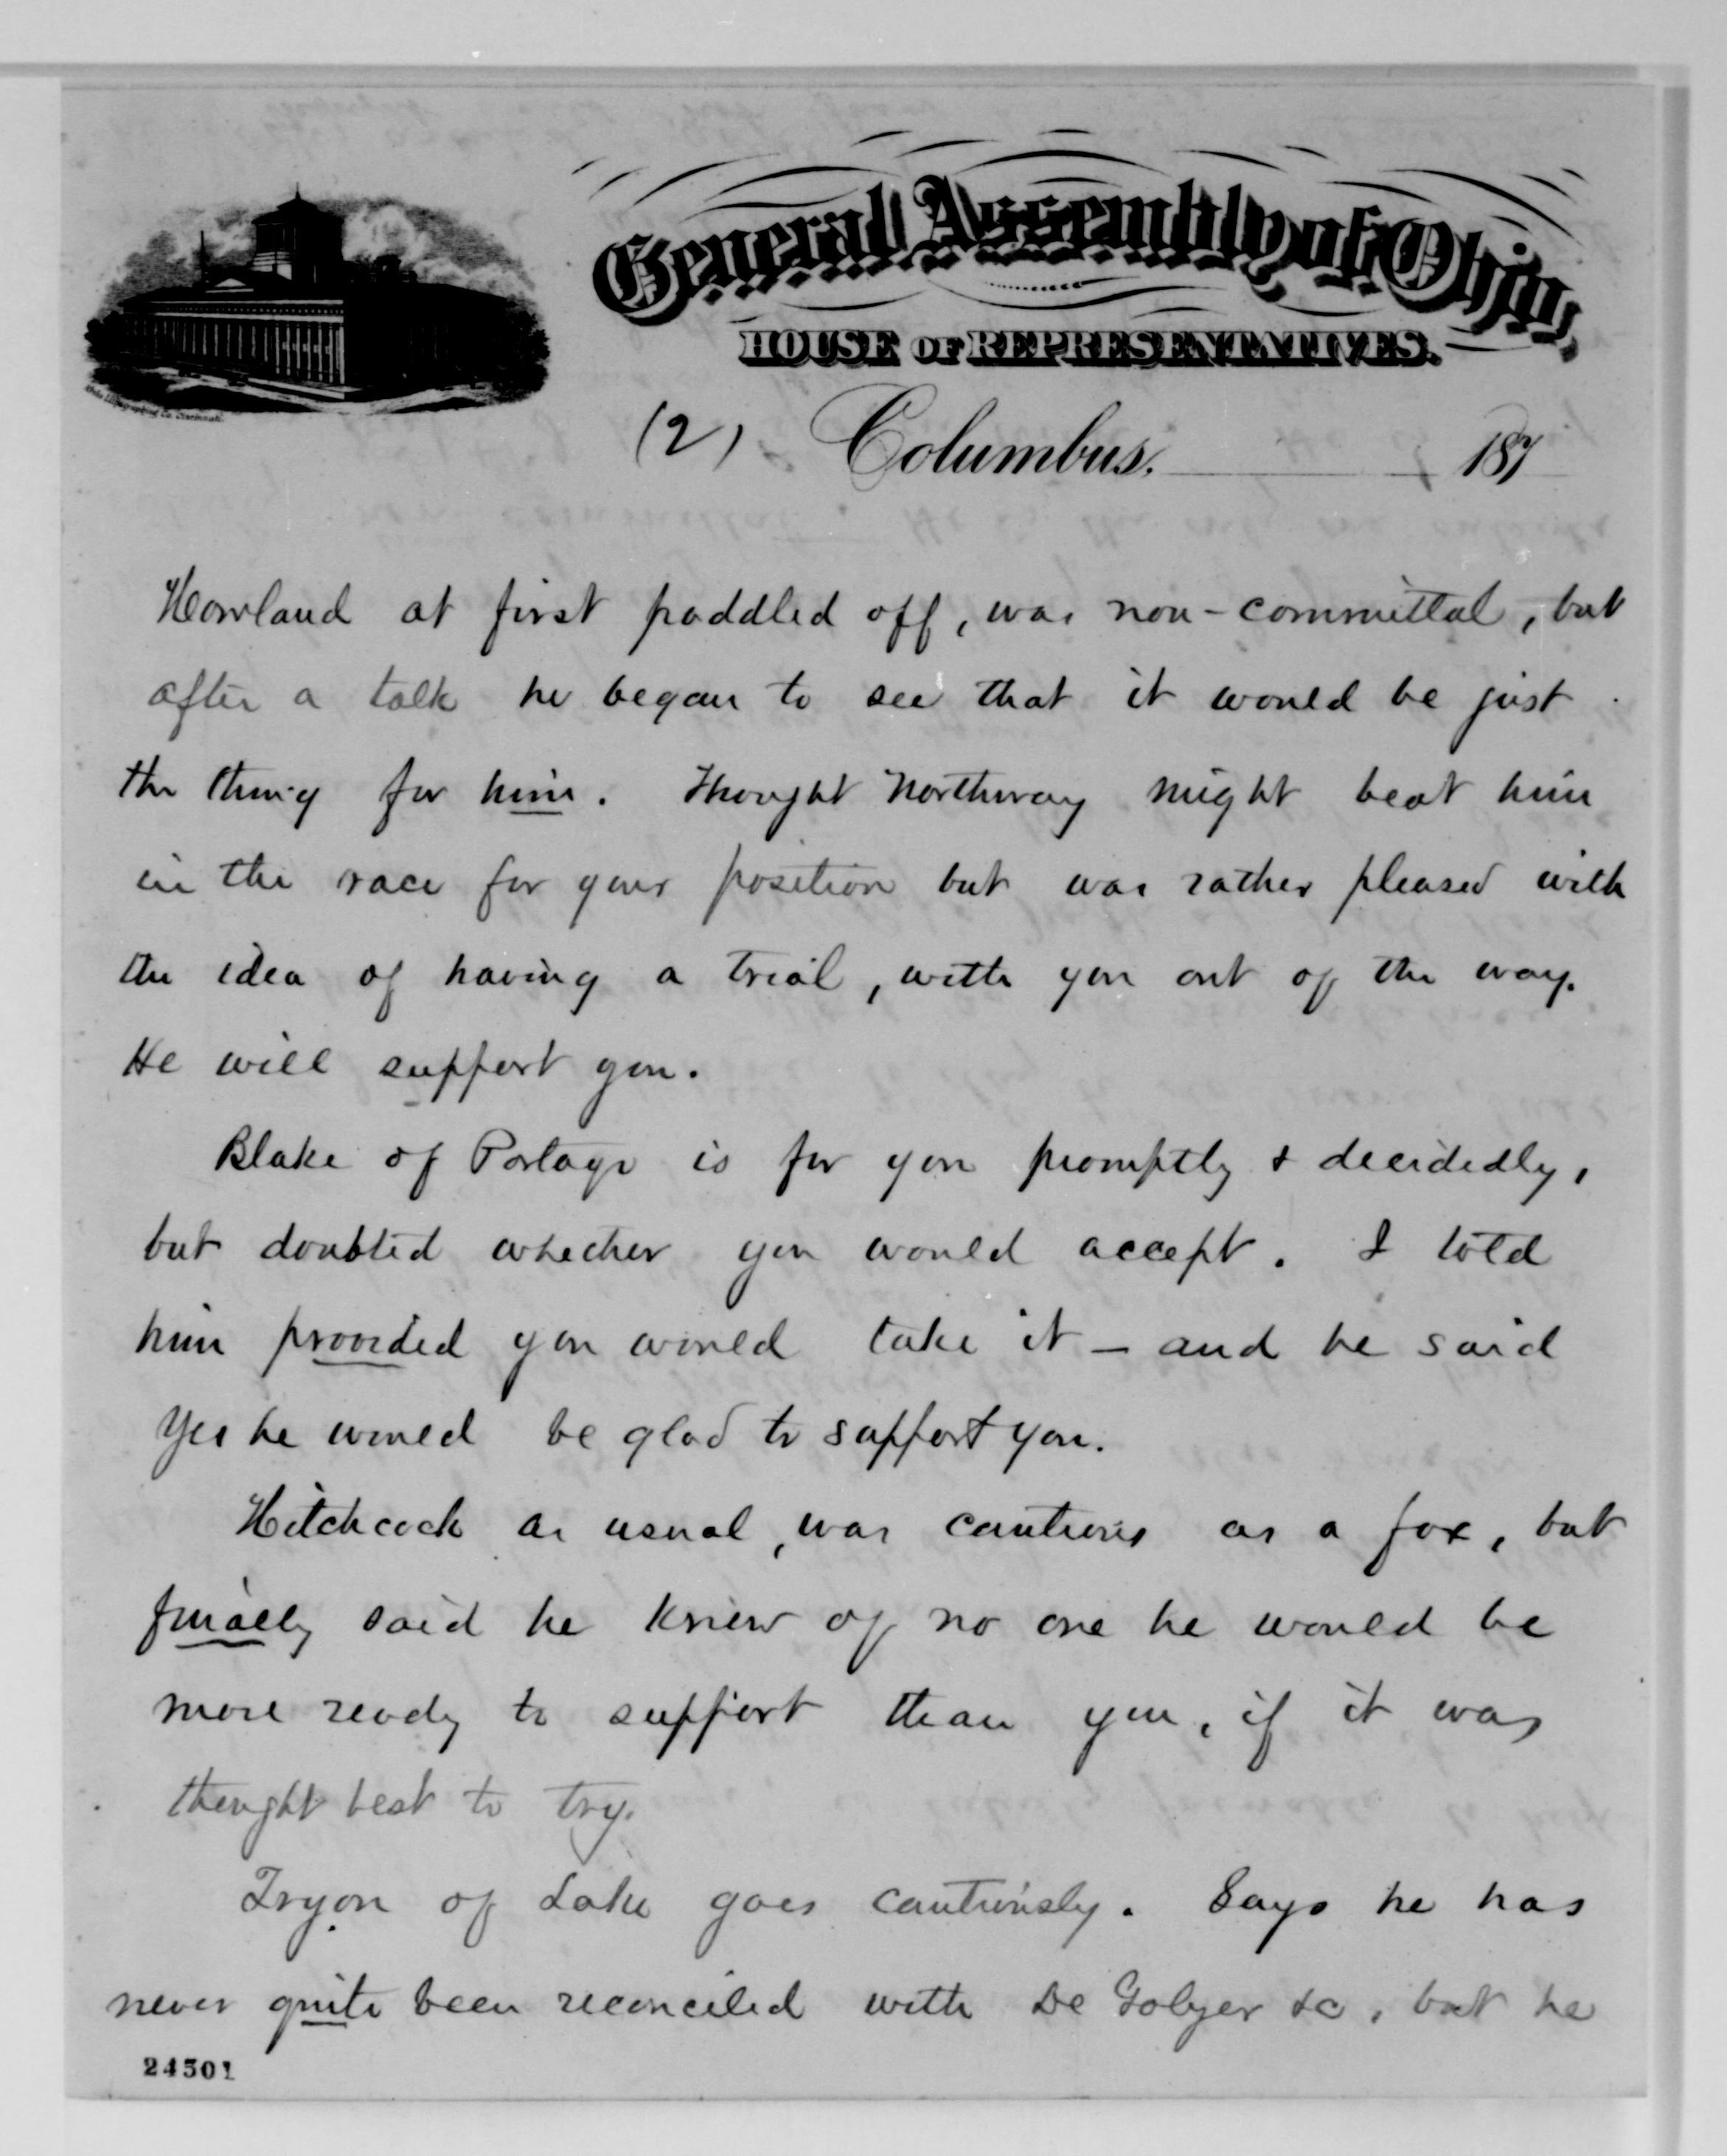 General Assembly of Ohio,
HOUSE OF REPRESENTATIVES.
(2) Columbus, 187
Howland at first paddled off, was non-committal, but
after a talk he began to see that it would be just
the thing for him. Thought Northway might beat him
in the race for your position but was rather pleased with
the idea of having a trial, with you out of the way.
He will support you.
Blake of Portage is for you promptly & decidedly,
but doubted whether you would accept. I told
him provided you would take it - and he said
Yes he would be glad to support you.
Hitchcock as usual, was cautious as a fox, but
finally said he knew of no one he would be
more ready to support than you, if it was
thought best to try.
Tryon of Lake goes cautiously. Says he has
never quite been reconciled with De Golyer &c, but he
24501